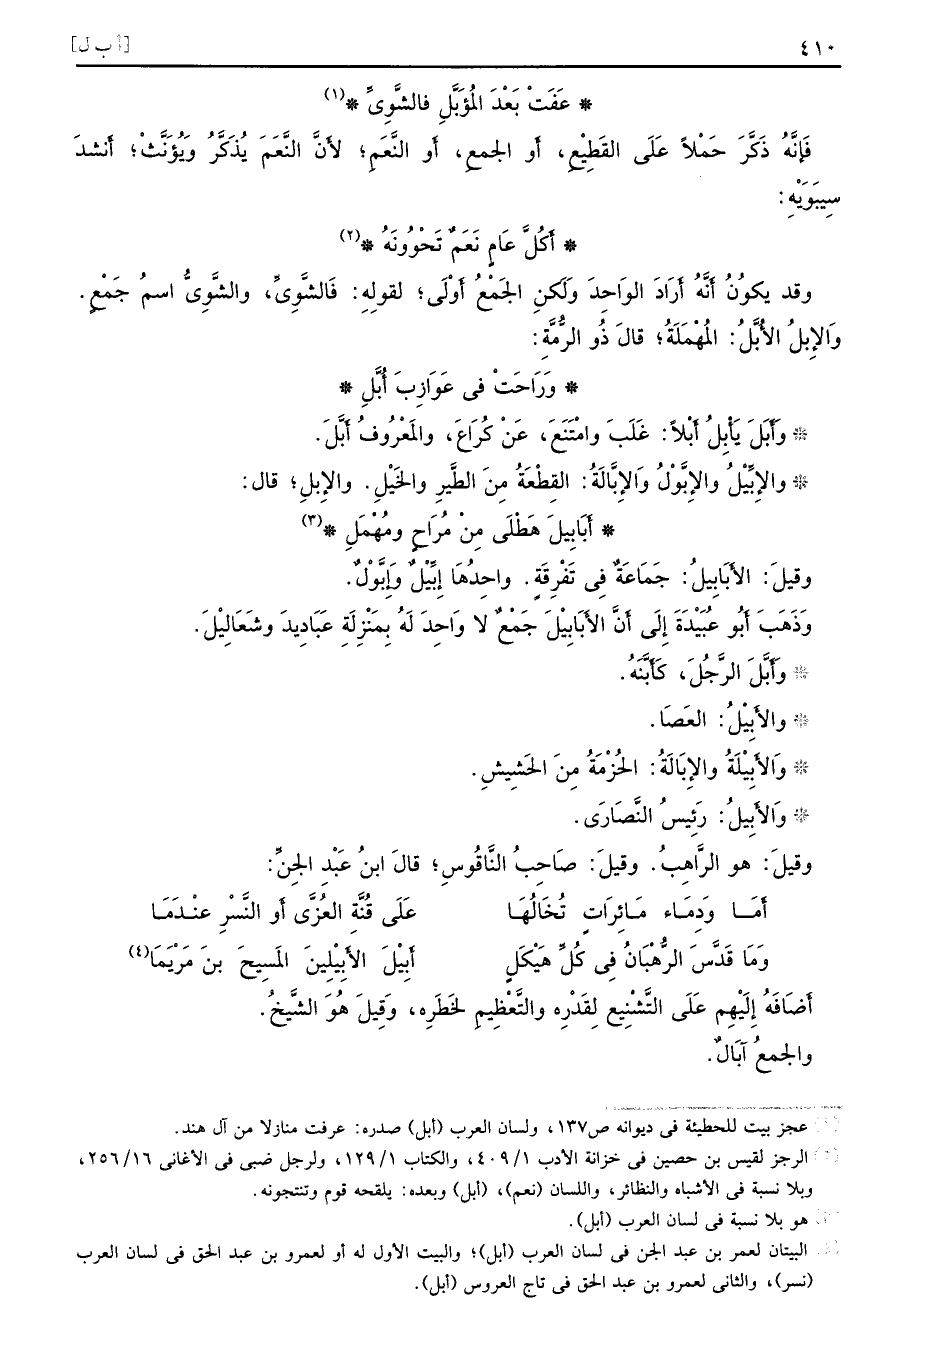 ٤١٠ [أ ب ل]
* عَفَتْ بَعْدَ المُؤَبَّلِ فالشَّوِىِّ *(١)
فَإِنَّهُ ذَكَّرَ حَمْلاً عَلَى القَطِيْعِ، أو الجمعِ، أو النَّعَمِ؛ لأنَّ النَّعَمَ يُذَكَّرُ ويُؤنَّثْ؛ أنشدَ
سِيبَوَيْهِ:
* أَكُلَّ عَامٍ نَعَمٌ تَحْوُونَهُ *(٢)
وقد يكونُ أَنَّهُ أَرَادَ الوَاحِدَ وَلَكنِ الجَمْعُ أَوْلَى؛ لقولِهِ: فَالشَّوِىِّ، والشَّوِىُّ اسمُ جَمْعٍ.
وَالإبلُ الأُبَّلُ: المُهْمَلَةُ؛ قالَ ذُو الرُّمَّةِ:
* وَرَاحَتْ فى عَوَازِبَ أُبَّلِ *
* وأَبَلَ يَأْبِلُ أَبْلاً: غَلَبَ وامْتَنَعَ، عَنْ كُرَاعَ، والمَعْرُوفُ أَبَّلَ.
* والإبِّيْلُ والإبَّوْلُ وَالإبَّالَةُ: القِطْعَةُ مِنَ الطَّيرِ والخَيْلِ. والإبلِ؛ قال:
* أَبَابِيلَ هَطْلَى مِنْ مُرَاحٍ ومُهْمَلِ *(٣)
وقيلَ: الأبَابِيلُ: جَمَاعَةٌ فِى تَفْرِقَةٍ. واحِدُهَا إبِّيْلٌ وَإبَّوْلٌ.
وَذَهَبَ أَبُو عُبَيْدَةَ إِلَى أنَّ الأبَابِيْلَ جَمْعٌ لا وَاحِدَ لَهُ بِمَنْزِلَةِ عَبَادِيدَ وشَعَاليْلَ.
* وأَبَّلَ الرَّجُلَ، كَأَبَّنَهُ.
* والأَبِيْلُ: العَصَا.
* وَالأَبِيْلَةُ والإبَالَةُ: الحُزْمَةُ مِنَ الحَشِيشِ.
* وَالأَبِيلُ: رَئِيسُ النَّصَارَى.
وقيلَ: هو الرَّاهِبُ. وقيلَ: صَاحِبُ النَّاقُوسِ؛ قالَ ابنُ عَبْدِ الجِنِّ:
أَمَـا وَدمَاء مَـائِرَاتٍ تُخَالُهَـا عَلَى قُنَّةِ العُزَّى أو النَّسْرِ عنْـدَمَـا
وَمَا قَدَّسَ الرُّهْبَانُ فِى كُلِّ هَيْكَلٍ أَبِيْلَ الأَبِيلِينَ المَسِيحَ بنَ مَرْيَمَا(٤)
أضَافَهُ إلَيْهِم عَلَى التَّشْنِيعِ لِقَدْرِه والتَّعْظِيمِ لخَطَرِه، وَقِيلَ هُوَ الشَّيخُ.
والجمعُ آبَالٌ.
عجز بيت للحطيئة فى ديوانه ص١٣٧، ولسان العرب (أبل) صدره: عرفت منازلا من آل هند.
(٢) الرجز لقيس بن حصين فى خزانة الأدب ٤٠٩/١، والكتاب ١٢٩/١، ولرجل ضبى فى الأغانى ٢٥٦/١٦،
وبلا نسبة فى الأشباه والنظائر، واللسان (نعم)، (أبل) وبعده: يلقحه قوم وتنتجونه.
هو بلا نسبة فى لسان العرب (أبل).
البيتان لعمر بن عبد الجن فى لسان العرب (أبل)؛ والبيت الأول له أو لعمرو بن عبد الحق فى لسان العرب
(نسر)، والثانى لعمرو بن عبد الحق فى تاج العروس (أبل).